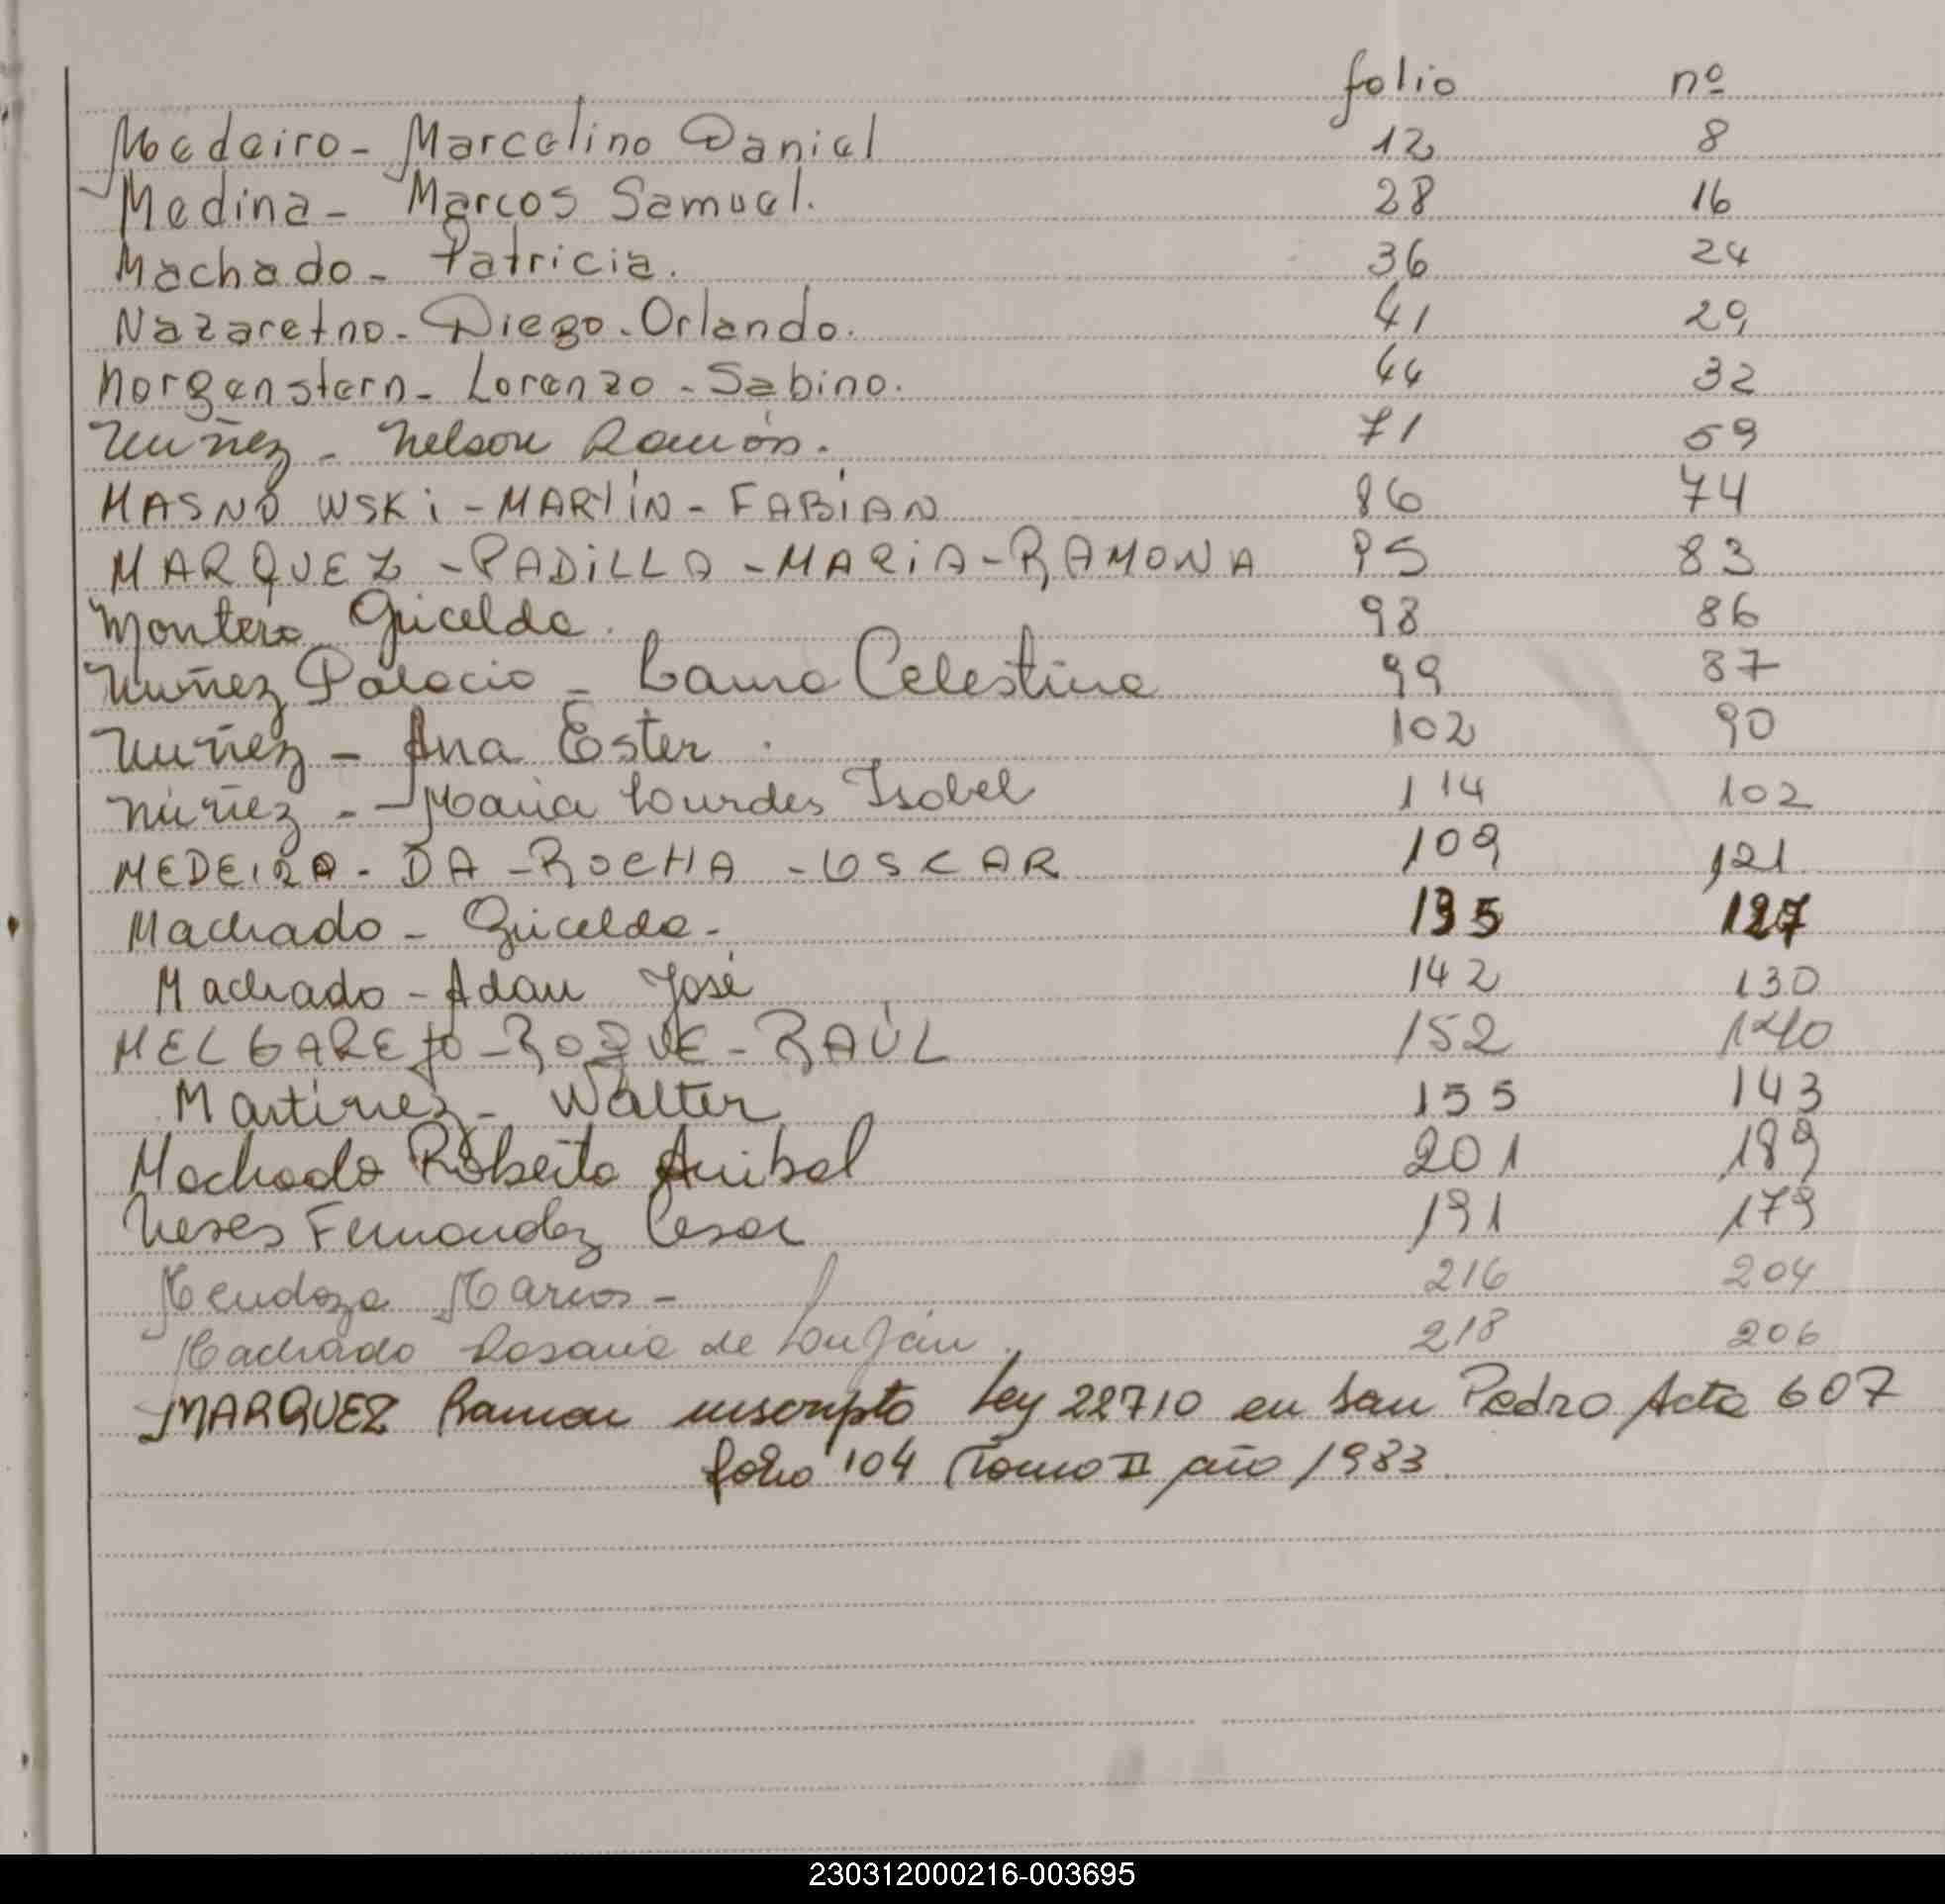 folio nº
Medeiro - Marcelino Daniel 12 8
Medina - Marcos Samuel. 28 16
Machado - Patricia. 36 24
Nazaretno - Diego - Orlando. 41 29
Morgenstern - Lorenzo - Sabino. 44 32
Nuñez - Nelson Ramón. 71 59
MASNO WSKi - MARTíN - FABiAN 86 74
MARQUEZ - PADiLLA - MARiA - RAMONA 95 83
Montero Gricelda. 98 86
Nuñez Palacio - Laura Celestina 99 87
Nuñez - Ana Ester. 102 90
Nuñez - Maria Lourdes Isabel 114 102
MEDEIRO - DA - ROCHA - OSCAR 109 121
Machado - Gricelda - 135 127
Machado - Adan José 142 130
MELGAREJO - ROQUE - RAÚL 152 140
Martinez - Walter 155 143
Machado Roberto Anibal 201 189
Neves Fernandez Cesar 191 179
Mendoza Marcos - 216 204
Machado Rosana de Luján. 218 206
MARQUEZ Ramon inscripto Ley 22710 en San Pedro Acta 607
folio 104 Tomo II año 1983
230312000216-003695